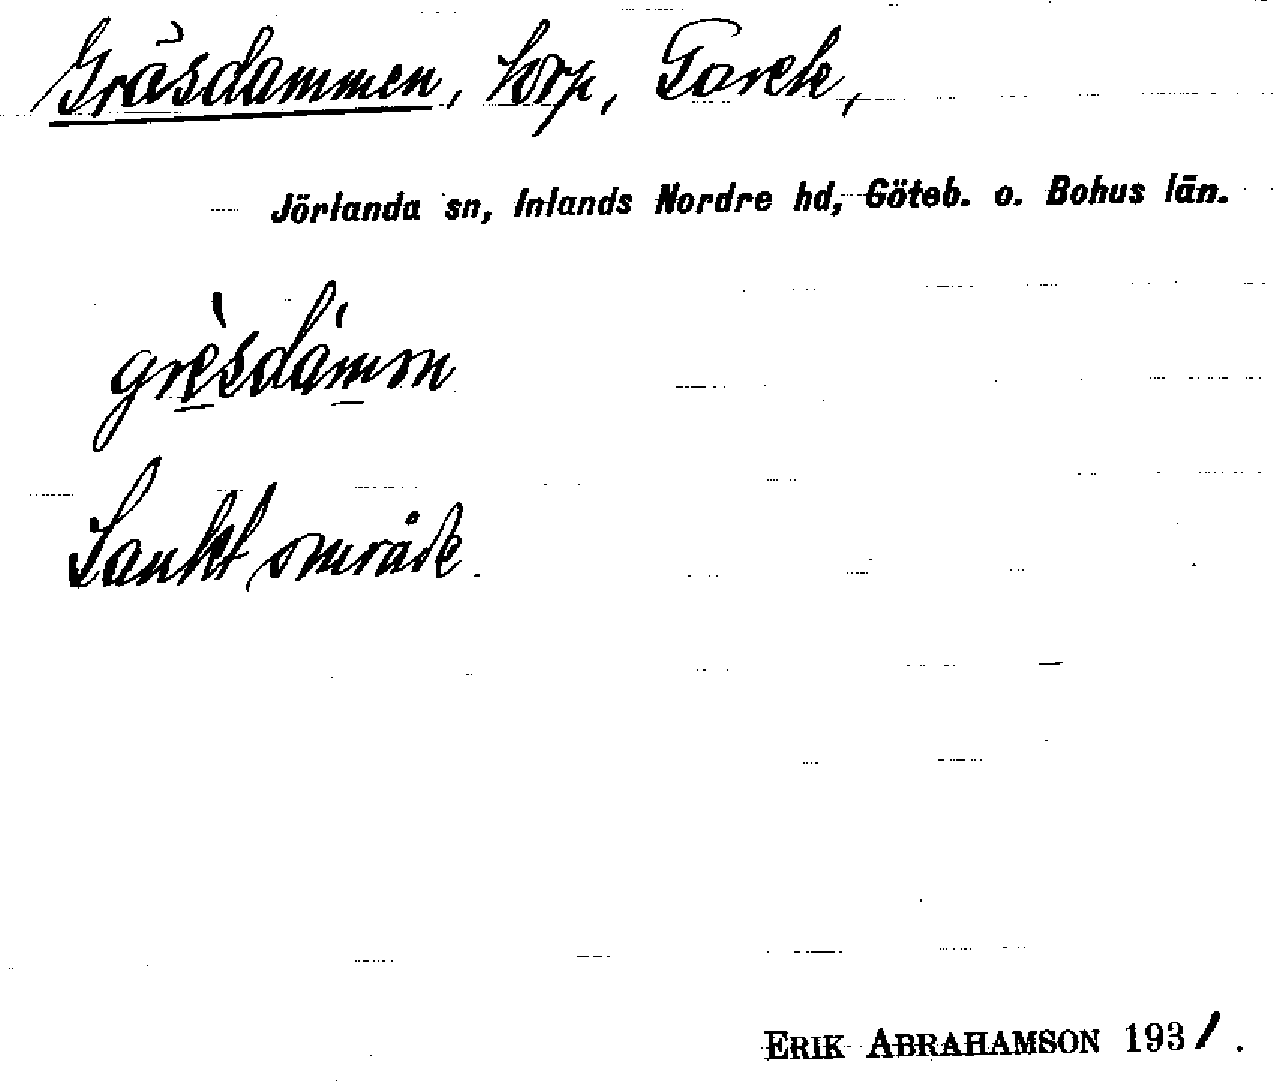 Gräsdammen, torp, Tareke,
Jörlanda sn, Inlands Nordre hd, Göteb. o. Bohus län.
grèsdámm
Sankt område.
ERIK ABRAHAMSON 1931.